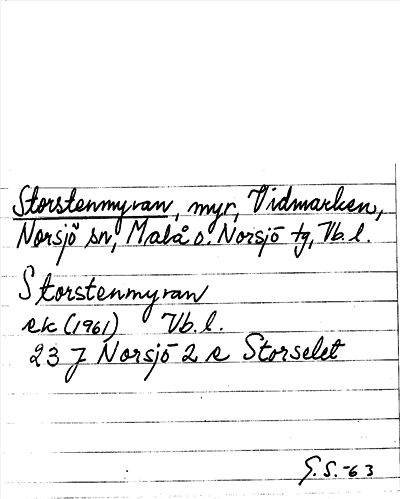 Storstenmyran, myr, Vidmarken,
Norsjö sn, Malå o. Norsjö tg, Vb. l.
Storstenmyran
ek (1961) Vb. l.
23 J Norsjö 2 e Storselet
G. S. -63